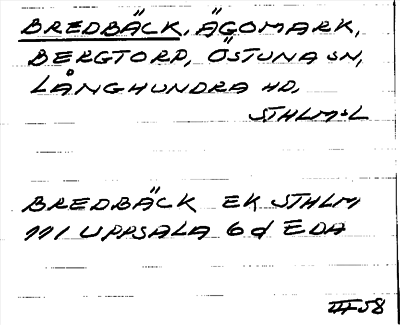 BREDBÄCK, ÄGOMARK,
BERGTORP, ÖSTUNA SN,
LÅNGHUNDRA HD,
STHLMSL
BREDBÄCK EK STHLM
111 UPPSALA 6d EDA
III 58